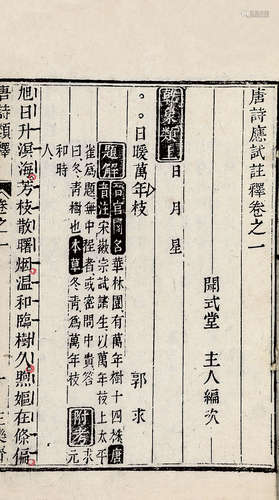 唐詩應試註釋卷之一
閑式堂 主人編次
乾象類上 日 月 星
。。日暖萬年枝 郭 求
題解 晉宮閣名 華林園有萬年樹十四株 唐
音註 宋徽宗試諸生以萬年枝上太平
雀為題無中程者或密問中貴答
曰冬青樹也 本草 冬青為萬年枝
附考 求
元
和時
人
旭日升溟海芳枝散曙烟温和臨樹久煦嫗在條偏
唐詩類釋 卷之一 一 三樂齋